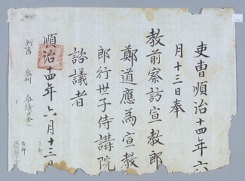 吏曹順治十四年六
月十三日奉
教前察訪宣教郎
鄭道應為宣教
郎行世子侍講院
諮議者
順治十四年六月十三日